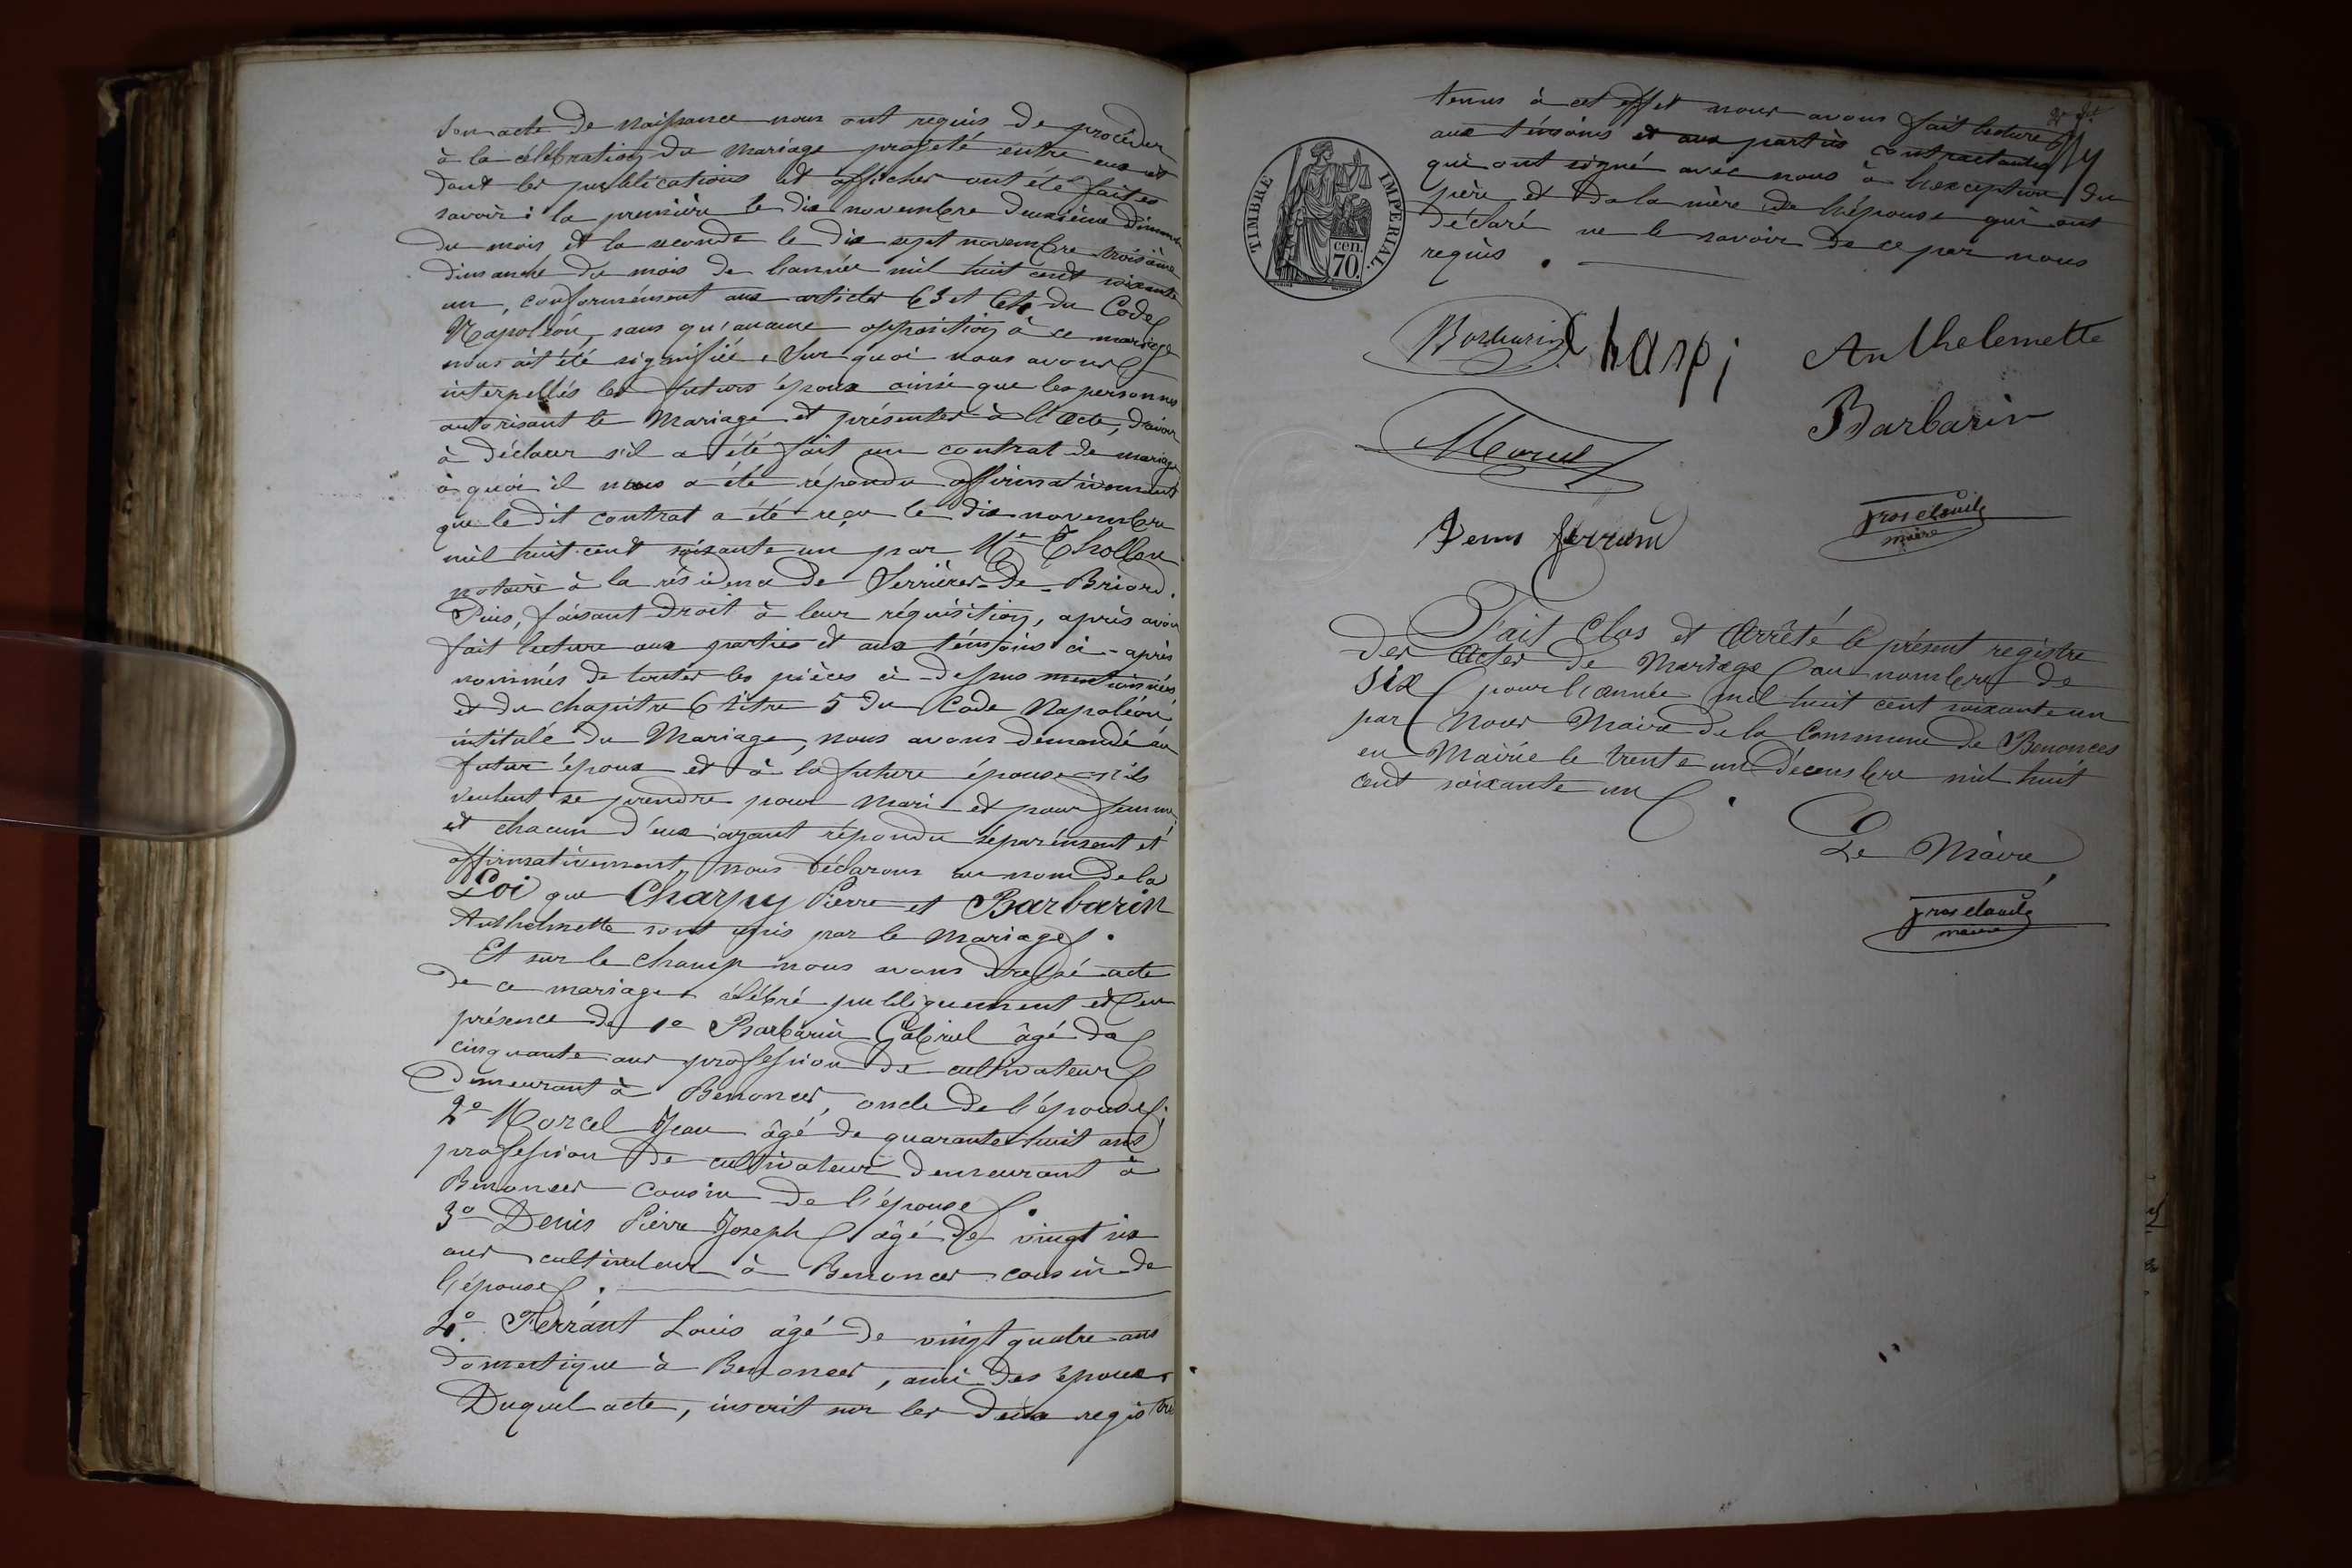 son acte de naissance nous ont requis de procéder
à la célébration du mariage projeté entre eux et
dont les publications et affiches ont été faites
savoir : la première le dix novembre deuxième Dimanche
du mois et la seconde le dix sept novembre troisième
dimanche du mois de l'année mil huit cent soixante
un, conformément aux articles 63 et 64 du Code
Napoléon, sans qu'aucune opposition à ce mariage
nous ait été signifiée. Sur quoi nous avons
interpellés les futurs époux ainsi que les personnes
autorisant le Mariage et présentes à l'acte, d'avoir
à déclarer s'il a été fait un contrat de mariage
à quoi il nous a été répondu affirmativement
que le dit contrat a été reçu le dix novembre
mil huit cent soixante un par Me Thollon
notaire à la résidence de Serrières-de-Briord.
Puis, faisant droit à leur réquisition, après avoir
fait lecture aux parties et aux témoins ci-après
nommés de toutes les pièces ci-dessus mentionnées
et du chapitre 6 titre 5 du Code Napoléon,
intitulé du Mariage, nous avons demandé au
futur époux et à la future épouse s'ils
veulent se prendre pour mari et pour femme,
et chacun d'eux ayant répondu séparément et
affirmativement, nous déclarons au nom de la
Loi que Charpy Pierre et Barbarin
Anthelmette sont unis par le mariage.
Et sur le champ nous avons dressé acte
de ce mariage célébré publiquement et en
présence de 1o Barbarin Gabriel âgé de
cinquante ans profession de cultivateur
demeurant à Benonces, oncle de l'épouse;
2o Morcel Jean âgé de quarante huit ans
profession de cultivateur demeurant à
Benonces cousin de l'épouse.
3o Denis Pierre Joseph âgé de vingt six
ans cultivateur à Benonces cousin de
l'épouse.
4o. Ferrant Louis âgé de vingt quatre ans
domestique à Benonces, ami des époux.
Duquel acte, inscrit sur les deux registres
tenus à cet effet nous avons fait lecture
aux témoins et aux parties contractantes
qui ont signé avec nous à l'exception du
père et de la mère de l'épouse qui ont
déclaré ne le savoir de ce par nous
requis.
TIMBRE IMPERIAL.
cen.
70.
Barbarin Charpi Anthelemette
Morcel Barbarin
Denis ferrant
maire
Fait Clos et Arrêté le présent registre
des Actes de Mariage au nombre de
six pour l'année mil huit cent soixante un
par Nous Maire de la Commune de Benonces
en Mairie le trente un Décembre mil huit
cent soixante un.
Le Maire
maire